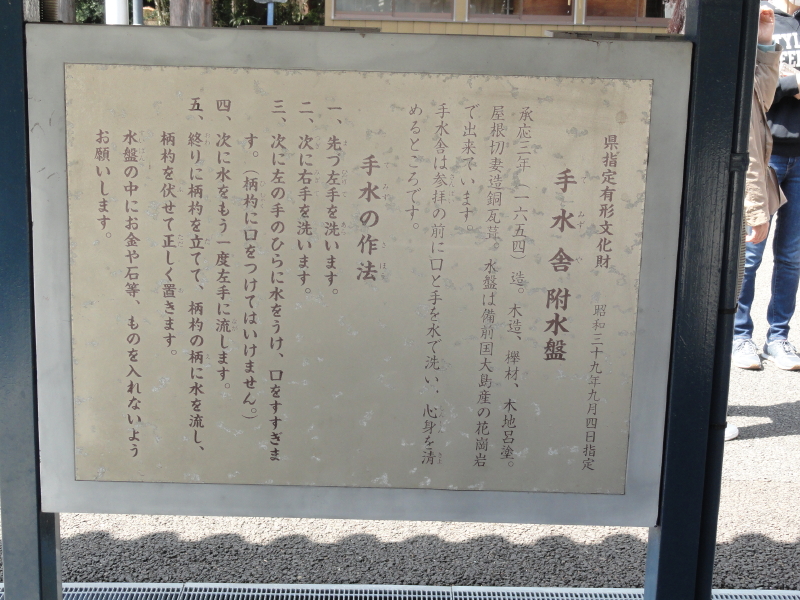 県指定有形文化財　昭和三十九年九月四日指定
手水舎 附水盤
承応三年（一六五四）造。木造、欅材、木地呂塗。
屋根切妻造銅瓦葺。水盤は備前国犬島産の花崗岩
で出来ています。
手水舎は参拝の前に口と手を水で洗い、心身を清
めるところです。
手水の作法
一、先づ左手を洗います。
二、次に右手を洗います。
三、次に左の手のひらに水をうけ、口をすすぎま
す。（柄杓に口をつけてはいけません。）
四、次に水をもう一度左手に流します。
五、終りに柄杓を立てて、柄杓の柄に水を流し、
柄杓を伏せて正しく置きます。
水盤の中にお金や石等、ものを入れないよう
お願いします。